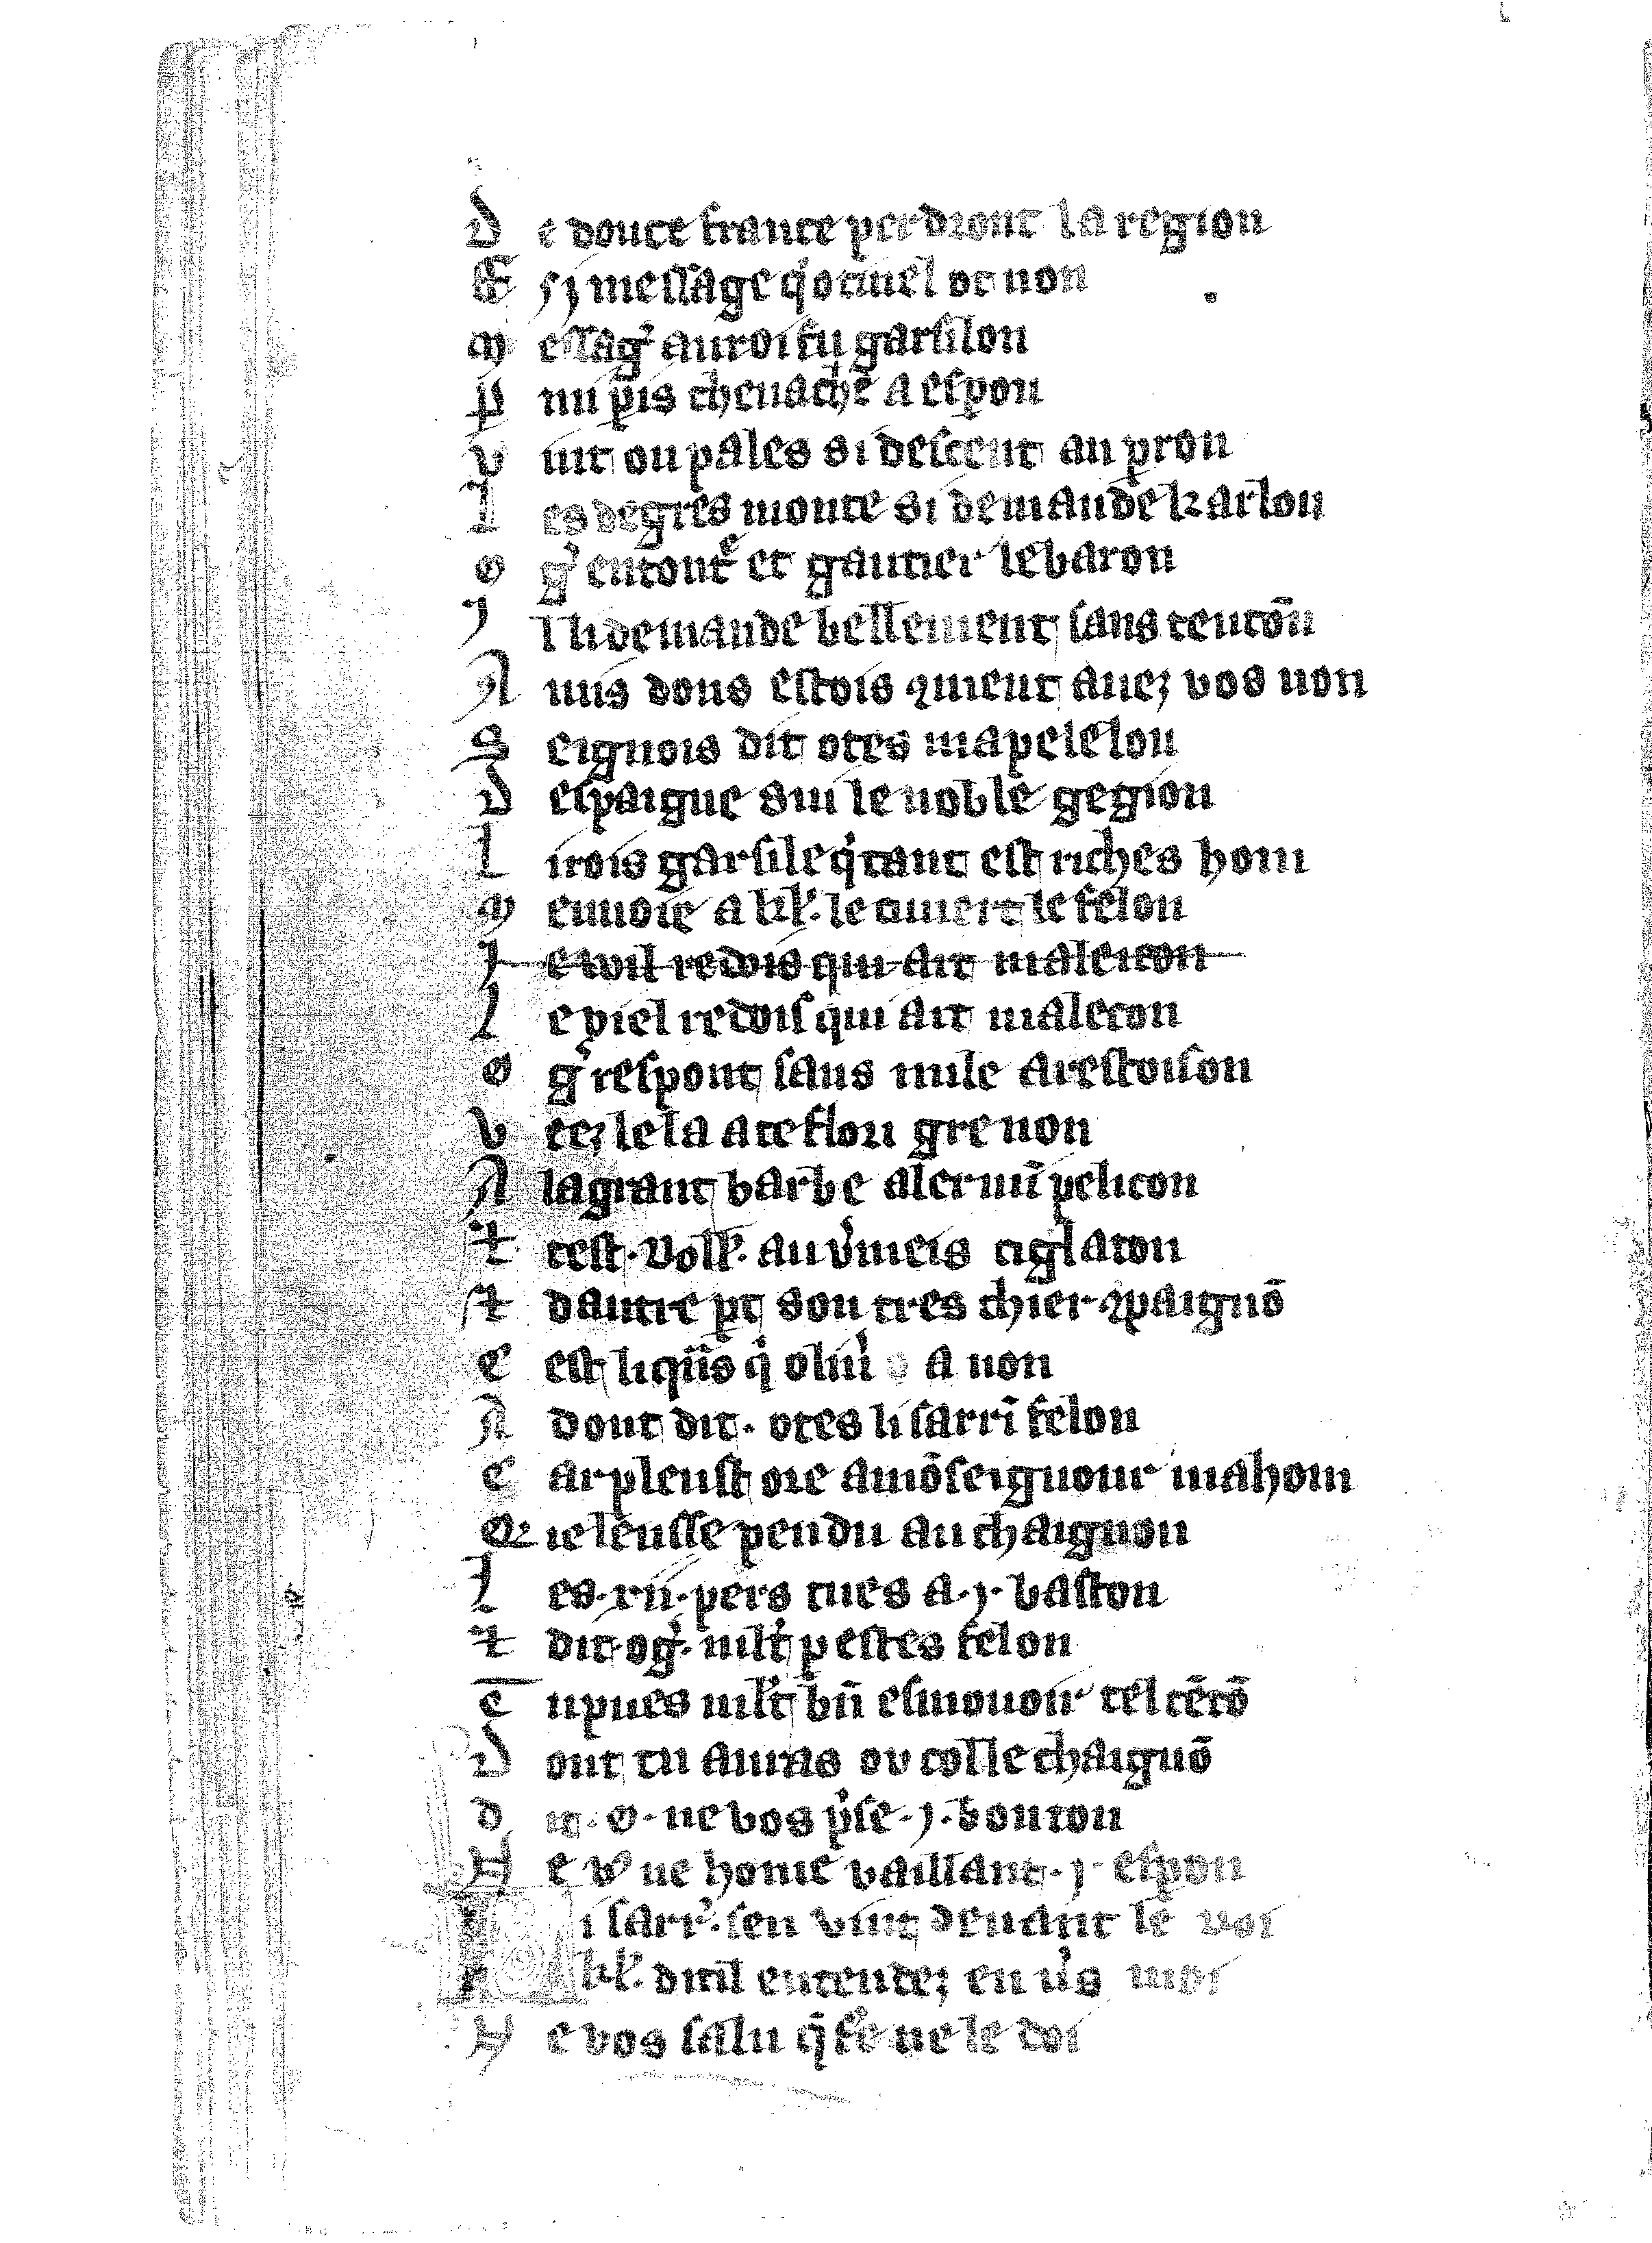 D e douce france perdront la region
E s .j. message q̇ otinel ot non
M essagꝰ au roi fu garsilon
P mi pis cheuache a espon
V int ou pales si descent au pron
L es degres monte si demande karlon
O gꝰ encontͤ et gautier le baron
I l li demande bellement sans tencōn
A mis dons estois ꝯment auez vos non
S eignois dit otes mapele lon
D espaigne sui le noble gegion
L i rois garsile q̇ tant est riches hom
M enuoie a kꝉ. le cuiuert le felon
L e viel redois qui ait malecon
L e viel redois qui ait malecon
O gꝰ respont sans nule arestoison
V eez le la a ce flori grenon
A la grant barbe al ermī pelicon
⁊ cest . Rollꝉ. au v̾meis ciglaton
⁊ dautre pt son tres chier ꝯpaignō
C est li q̄ns q̇ oliuꝰ a non
A dont dit . otes li sarrī felon
C ar pleust ore a mōseignour mahom
Q ie leusse pendu au chaignon
L es .xii. pers tues a .j. baston
⁊ dit ogꝰ. mlt p estes felon
E n pues mlt bn̄ esmouoir tel tēcō
D ont tu auras ou col le chaignō
D it .O. ne vos p̾se .j. bouton
N e v̾ ne home vaillant .j. espon
L i sarrꝰ. sen vint deuant le roi
kꝉ. dit il entendez en v̾s moi
N e vos salu q̄ fe ne le doi